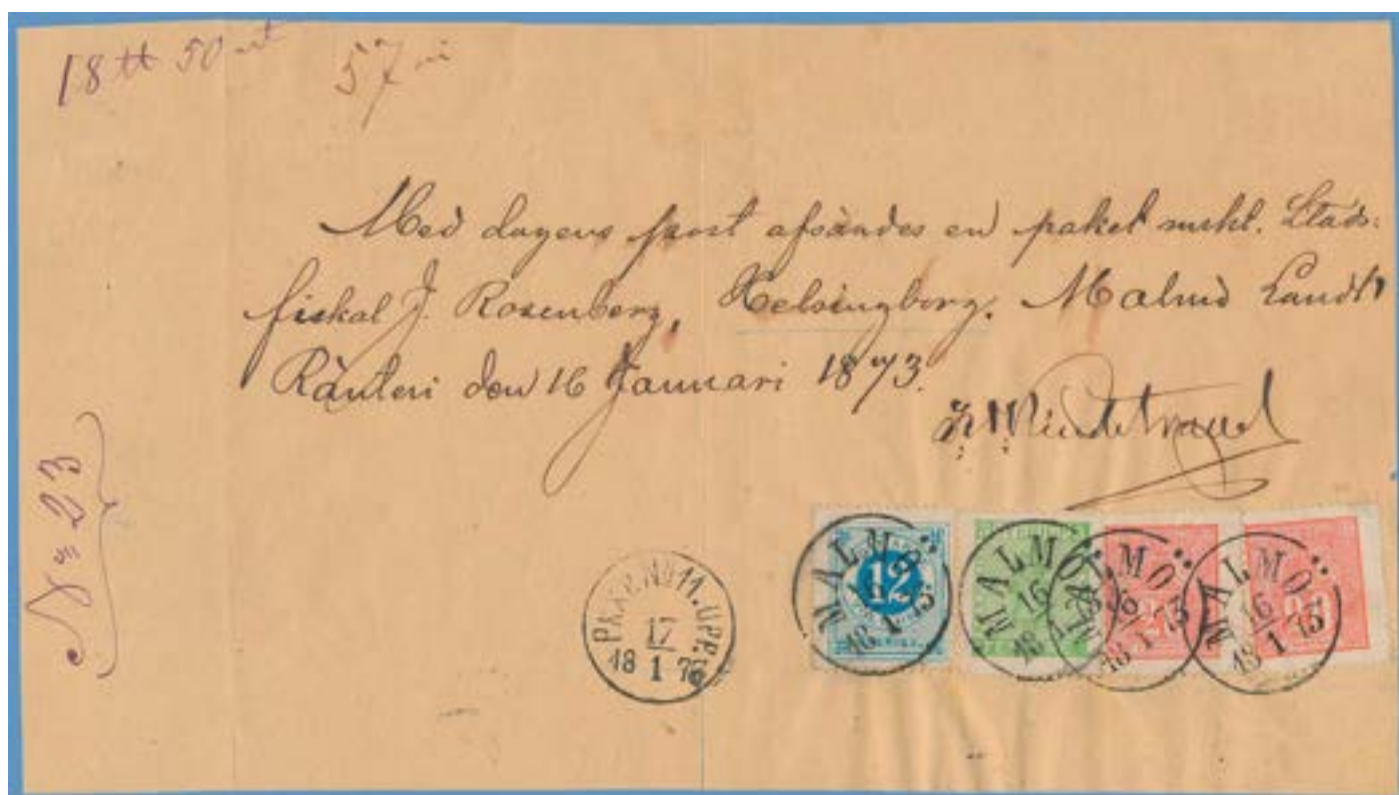 18 tt 50 ort 57 öre
Med dagens post afsändes en paket märkt. Stads-
fiskal J. Rosenberg, Helsingborg. Malmö Landt
Ränteri den 16 Januari 1873.
No 23
PKXP. No 11. UPP.
17
18 1 73
12
MALMÖ
16
18 1 73
MALMÖ
16
18 1 73
MALMÖ
16
18 1 73
MALMÖ
16
18 1 73